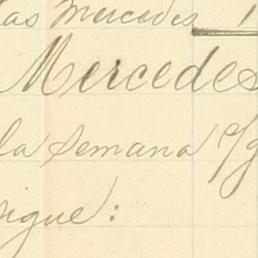 las Mercedes 1
Mercedes
la semana 7/9
sigue: